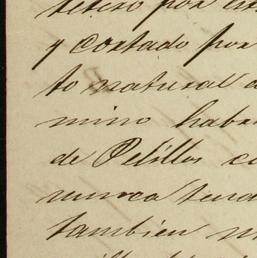 por
y cortado por
to natural
mino habr
de Pelillos c
nunca tend
tambien m